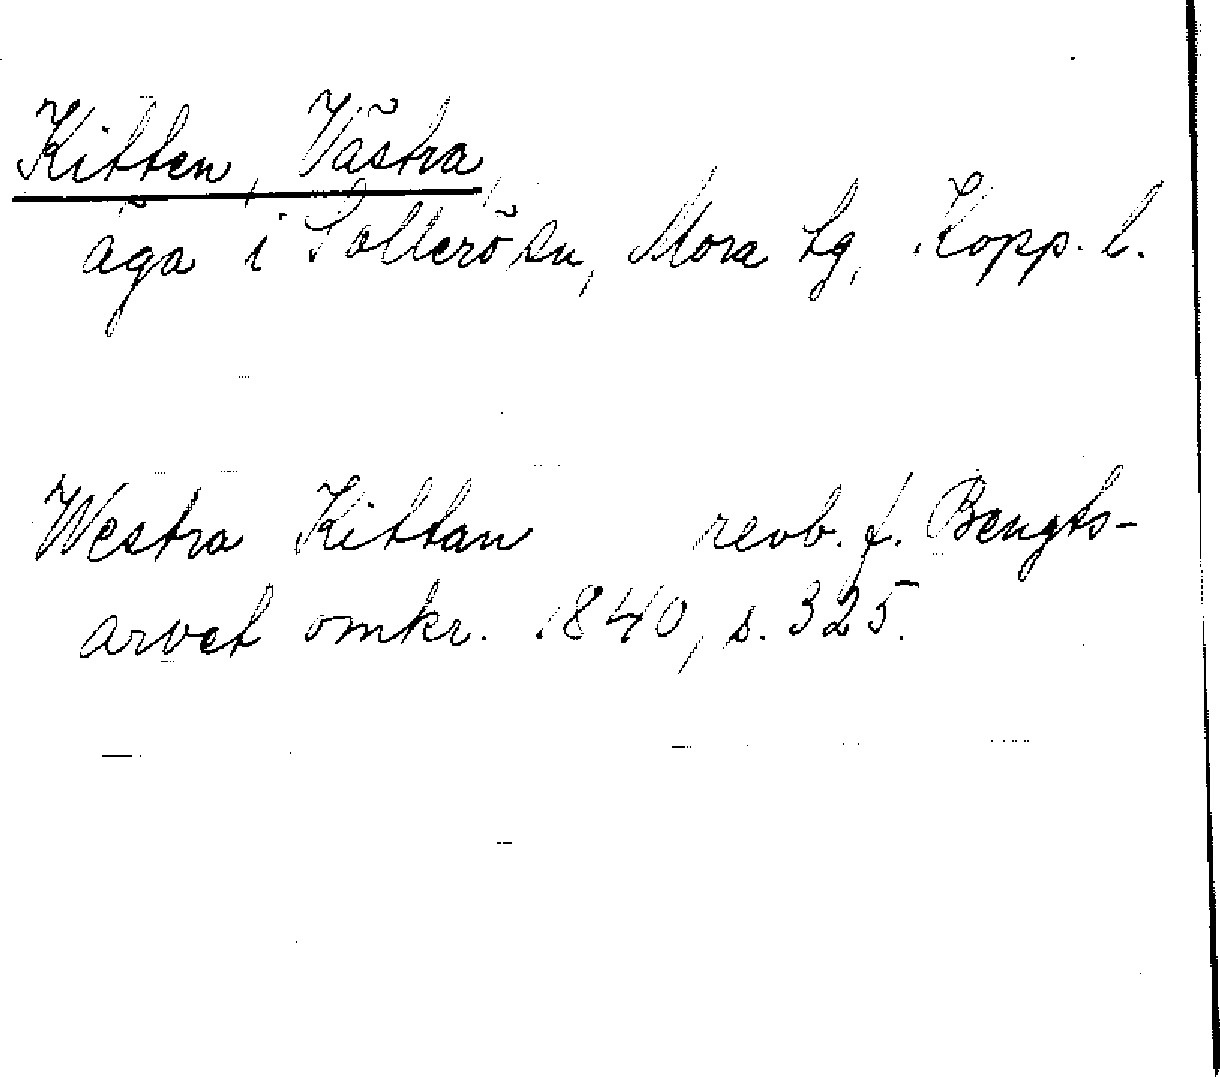 Kitten, Västra,
äga i Sollerö sn, Mora tg, Kopp. l.
Westra Kittan revb. f. Bengts-
arvet omkr. 1840, s. 325.